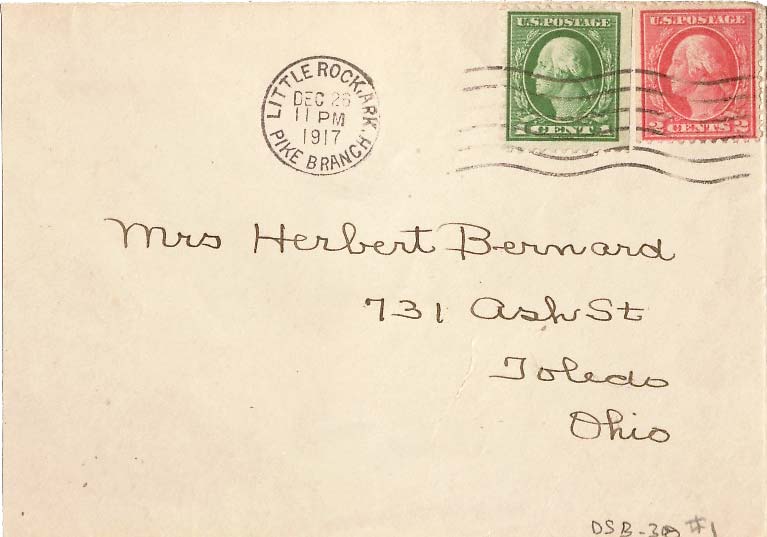 U.S.POSTAGE
1 CENT 1
U.S.POSTAGE
2 CENTS 2
LITTLE ROCK, ARK.
DEC 26
11 PM
1917
PIKE BRANCH
Mrs Herbert Bernard
731 Ash St
Toledo
Ohio
#1